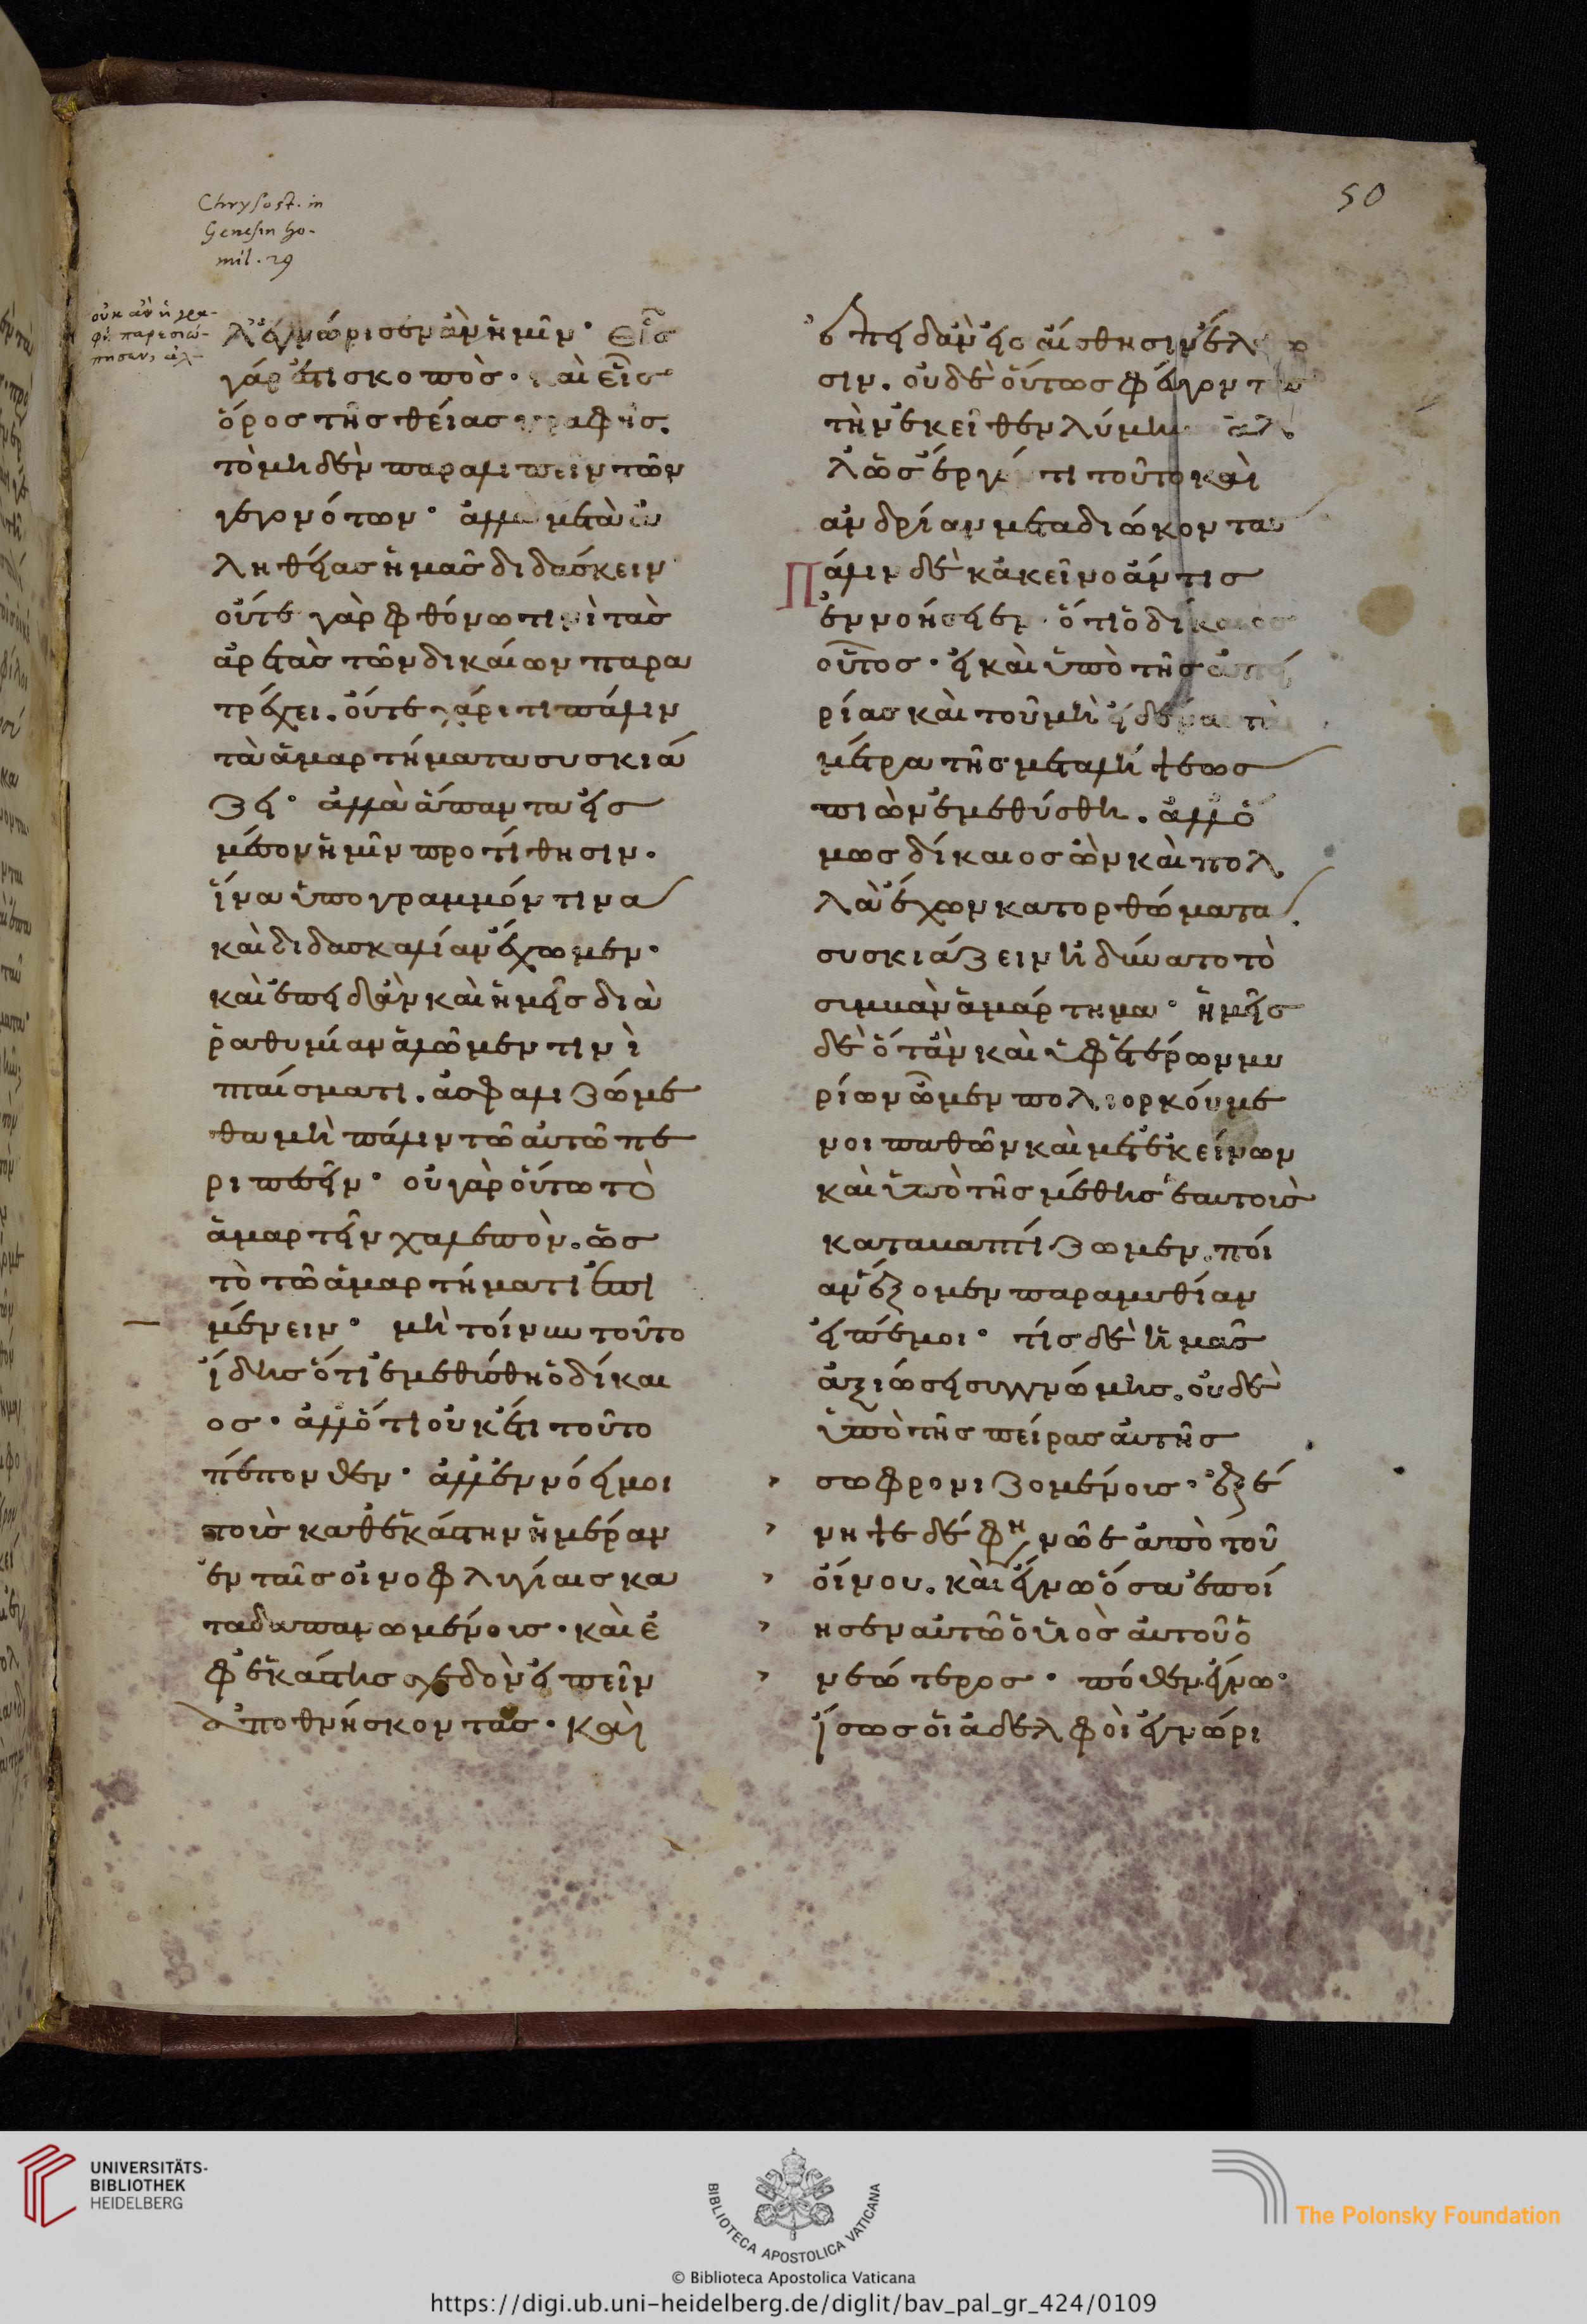 50
Chrysost. in
Genesin Ho-
mil. 29
οὐκ ἂν ἡ γρα-
φὴ παρεσιώ-
πησεν, ἀλ-
λ' ἐγνώρισεν ἂν ἡμῖν· εἷς
γάρ ἐστι σκοπὸς· καὶ εἷς
ὅρος τῆς θείας γραφῆς.
τὸ μηδὲν παραλιπεῖν τῶν
γεγονότων· ἀλλὰ μετὰ ἀ
ληθείας ἡμᾶς διδάσκειν
οὔτε γὰρ φθόνω τινὶ τὰς
ἀρετὰς τῶν δικαίων παρα
τρέχει. οὔτε χάριτι πάλιν
τὰ ἁμαρτήματα συσκιά
ζει· ἀλλὰ ἅπαντα εἰς
μέσον ἡμῖν προτίθησιν.
ἵνα ὑπογραμμόν τινα
καὶ διδασκαλίαν ἔχωμεν·
καὶ ἐπειδὰν καὶ ἡμεῖς διὰ
ῥαθυμίαν ἁλῶμεν τινὶ
πταίσματι. ἀσφαλιζώμε
θα μὴ πάλιν τῶ αὐτῶ πε
ριπεσεῖν· οὐ γὰρ οὕτω τὸ
ἁμαρτεῖν χαλεπὸν. ὡς
τὸ τῶ ἁμαρτήματι ἐπι
μένειν· μὴ τοίνυν τοῦτο
ἴδης ὅτι ἐμεθύσθη ὁ δίκαι
ος· ἀλλ' ὅτι οὐκ ἔτι τοῦτο
πέπονθεν· ἀλλ' ἐννόει μοι
τοὺς καθ' ἑκάστην ἡμέραν
ἐν ταῖς οἰνοφλυγίαις κα
ταδαπανωμένους· καὶ ἐ
φ' ἑκάστης σχεδὸν εἰπεῖν
ἀποθνήσκοντας· καὶ
ἐπειδὰν εἰς αἴσθησιν ἔλθω
σιν. οὐδὲ οὕτως φεύγοντας
τὴν ἐκεῖθεν λύμην ἀλ
λ' ὡς ἔργον τι τοῦτο καὶ
ἀνδρίαν μεταδιώκοντας
Πάλιν δὲ κἀκεῖνο ἄν τις
ἐννοήσειεν· ὅτι ὁ δίκαιος
οὗτος· εἰ καὶ ὑπὸ τῆς ἀπει
ρίας καὶ τοῦ μὴ εἰδέναι τὰ
μέτρα τῆς μεταλήψεως
πιὼν ἐμεθύσθη. ἀλλ' ὅ
μως δίκαιος ὢν καὶ πολ
λὰ ἔχων κατορθώματα
συσκιάζειν ἠδύνατο τὸ
συμβὰν ἁμάρτημα· ἡμεῖς
δὲ ὅταν καὶ ὑφ' ἑτέρων μυ
ρίων ὦμεν πολιορκούμε
νοι παθῶν καὶ μετ' ἐκείνων
καὶ ὑπὸ τῆς μέθης ἑαυτοὺς
καταβαπτίζωμεν. ποί
αν ἕξομεν παραμυθίαν
εἰπέ μοι· τίς δὲ ἡμᾶς
ἀξιώσει συγγνώμης. οὐδὲ
ὑπὸ τῆς πείρας αὐτῆς
σωφρονιζομένους· ἐξέ
νηψε δέ φη νῶε ἀπὸ τοῦ
οἴνου. καὶ ἔγνω ὅσα ἐποί
ησεν αὐτῶ ὁ υἱὸς αὐτοῦ ὁ
νεώτερος· πόθεν ἔγνω·
ἴσως οἱ ἀδελφοὶ ἐγνώρι
UNIVERSITÄTS-
BIBLIOTHEK
HEIDELBERG
BIBLIOTECA APOSTOLICA VATICANA
The Polonsky Foundation
© Biblioteca Apostolica Vaticana
https://digi.ub.uni-heidelberg.de/diglit/bav_pal_gr_424/0109